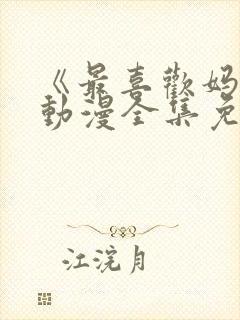 《最喜歡媽
動漫全集免
江浣月